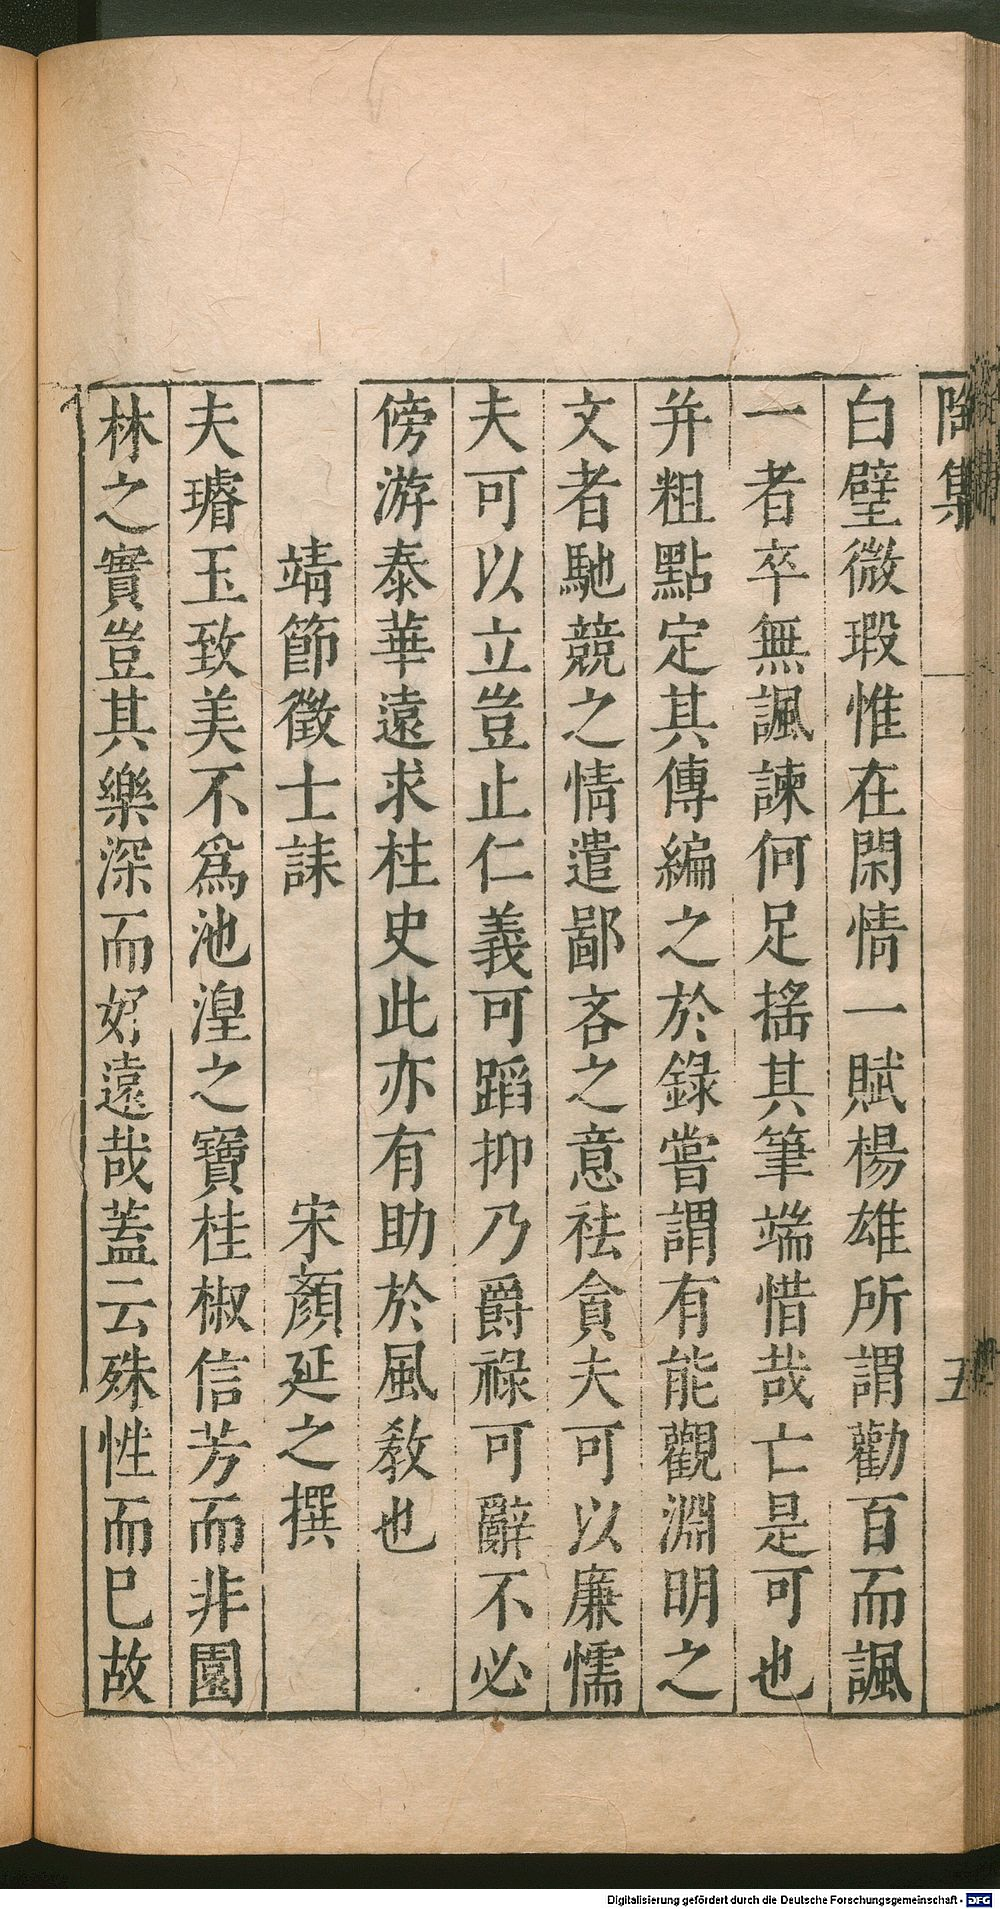 陶集
五
白璧微瑕惟在閑情一賦楊雄所謂勸百而諷
一者卒無諷諫何足搖其筆端惜哉亡是可也
并粗點定其傳編之於錄嘗謂有能觀淵明之
文者馳競之情遣鄙吝之意袪貪夫可以廉懦
夫可以立豈止仁義可蹈抑乃爵祿可辭不必
傍游泰華遠求柱史此亦有助於風教也
靖節徵士誄 宋顏延之撰
夫璿玉致美不爲池湟之寶桂椒信芳而非園
林之實豈其樂深而好遠哉蓋云殊性而巳故
Digitalisierung gefördert durch die Deutsche Forschungsgemeinschaft - DFG